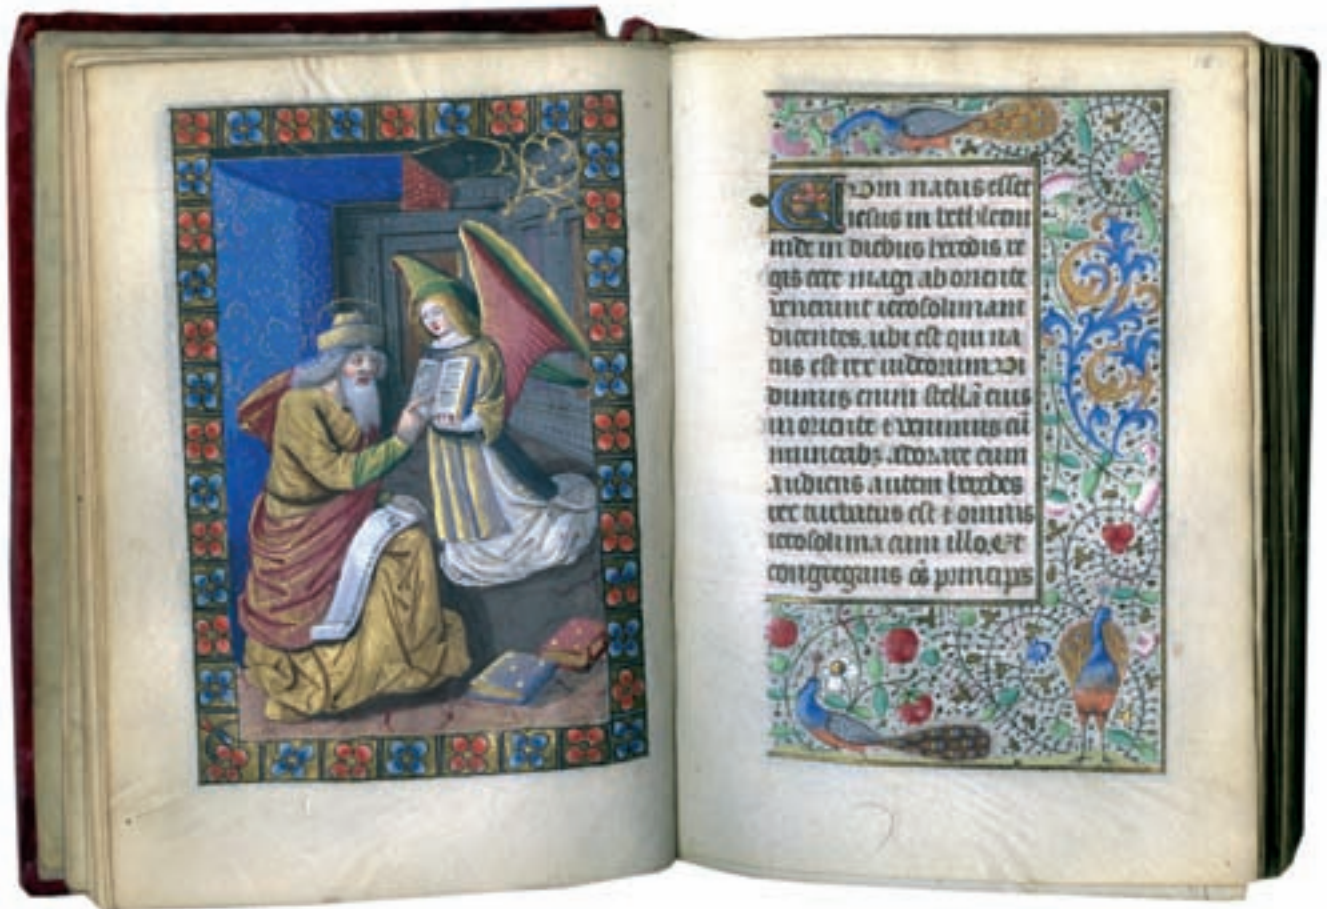 Cum natus esset
iesus in bethleem
iude in diebus herodis re
gis ecce magi ab oriente
venerunt ierosolimam
dicentes. ubi est qui na
tus est rex iudeorum vi
dimus enim stellā eius
in oriente & venimus cū
munerib; adorare eum
audiens autem herodes
rex turbatus est & omnis
ierosolima cum illo. Et
congregans ōs principes